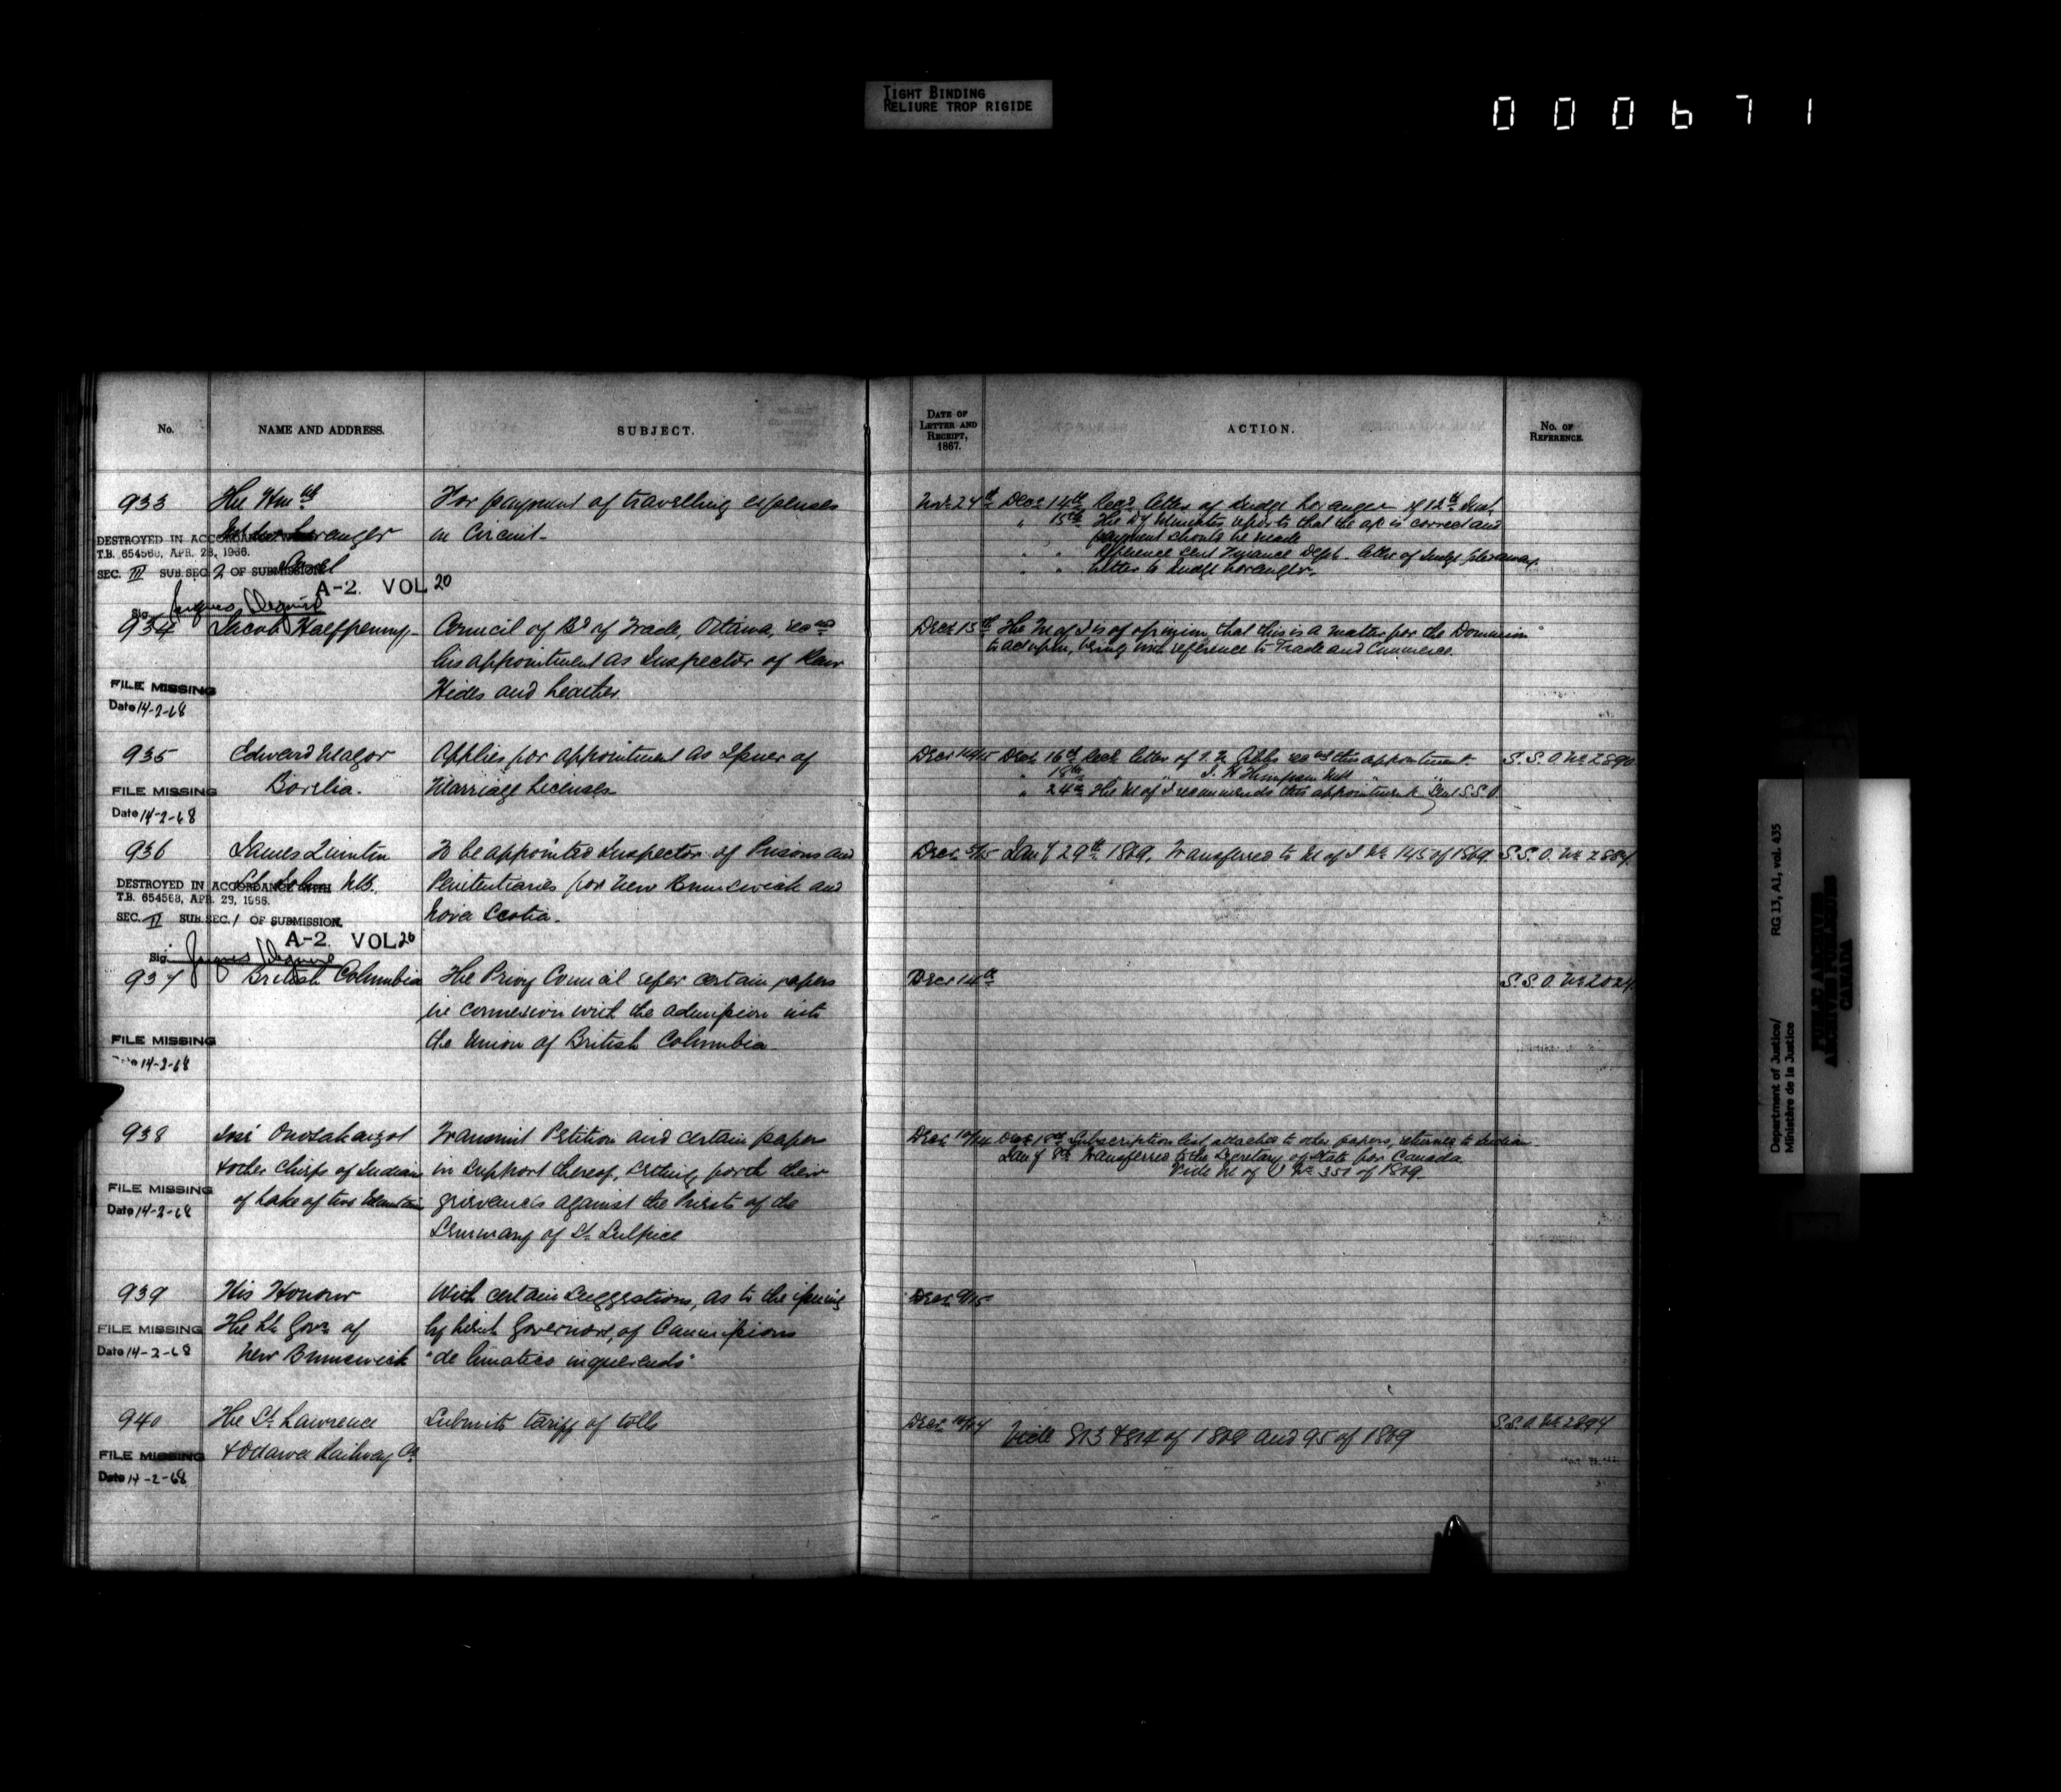 TIGHT BINDING
RELIURE TROP RIGIDE
000671
No.
NAME AND ADDRESS.
SUBJECT.
DATE OF LETTER AND RECEIPT, 1867.
ACTION.
No. OF REFERENCE.
933
The Honble
Loranger
Sorel
DESTROYED IN ACCORDANCE WITH
T.B. 654568, APR. 28, 1966.
SEC. III SUB.SEC. 2 OF SUBMISSION
A-2. VOL 20
Sig.
For payment of travelling expenses
on Circuit.
Novr 24th
Decr 14th Recd letter of Judge Loranger of 12th Inst.
" 15th The reports that the a/c is correct and
payment should be made
" " Reference sent Finance Dept. letter of Judge Loranger
" " Letter to Judge Loranger.
934
Jacob Halfpenny
FILE MISSING
Date 14-2-68
Council of Bd of Trade, Ottawa,
his appointment as Inspector of Raw
Hides and Leather
Decr 15th
The M of J is of opinion that this is a matter for the Dominion
to act upon, being with reference to Trade and Commerce.
935
Edward Magor
Borelia.
FILE MISSING
Date 14-2-68
Applies for appointment as Issuer of
Marriage Licenses
Decr 14/15
Decr 16th Recd letter of this appointment.
" 18th " J. H. Thompson
" 24th The M of J recommends this appointment. Sent S.S.O.
S.S.O. No 2890
936
James Quinton
St. John NB.
DESTROYED IN ACCORDANCE WITH
T.B. 654568, APR. 23, 1966.
SEC. II SUB.SEC. 1 OF SUBMISSION.
A-2. VOL 20
Sig.
To be appointed Inspector of Prisons and
Penitentiaries for New Brunswick and
Nova Scotia.
Decr 5/15
Jany 29th 1869, Transferred to M of J No 145 of 1869
S.S.O. No 2884
937
British Columbia
FILE MISSING
14-2-68
The Privy Council refer certain papers
in connexion with the admission into
the Union of British Columbia
Decr 14th
S.S.O. No 2024
938
& other Chiefs of Indians
of Lake of two Mountains
FILE MISSING
Date 14-2-68
Transmit Petition and certain papers
in support thereof, setting forth their
grievances against the Priests of the
Seminary of St. Sulpice
Decr 12/14
Decr 18th Subscription list, attached to other papers, returned to
Jany 8th Transferred to the Secretary of State for Canada
Vide No 351 of 1869
939
His Honour
The Lt Govr of
New Brunswick
FILE MISSING
Date 14-2-68
With certain suggestions, as to the issuing
by Lieut. Governors, of Commissions
"de lunatico inquerendo"
Decr 9/15
940
The St. Lawrence
& Ottawa Railway Co.
FILE MISSING
Date 14-2-68
Submits tariff of tolls
Decr 10/14
Vide 813 & 814 of 1868 and 95 of 1869
S.S.O. No 2894
Department of Justice/
Ministère de la Justice
RG 13, A1, vol. 435
PUBLIC ARCHIVES
ARCHIVES PUBLIQUES
CANADA